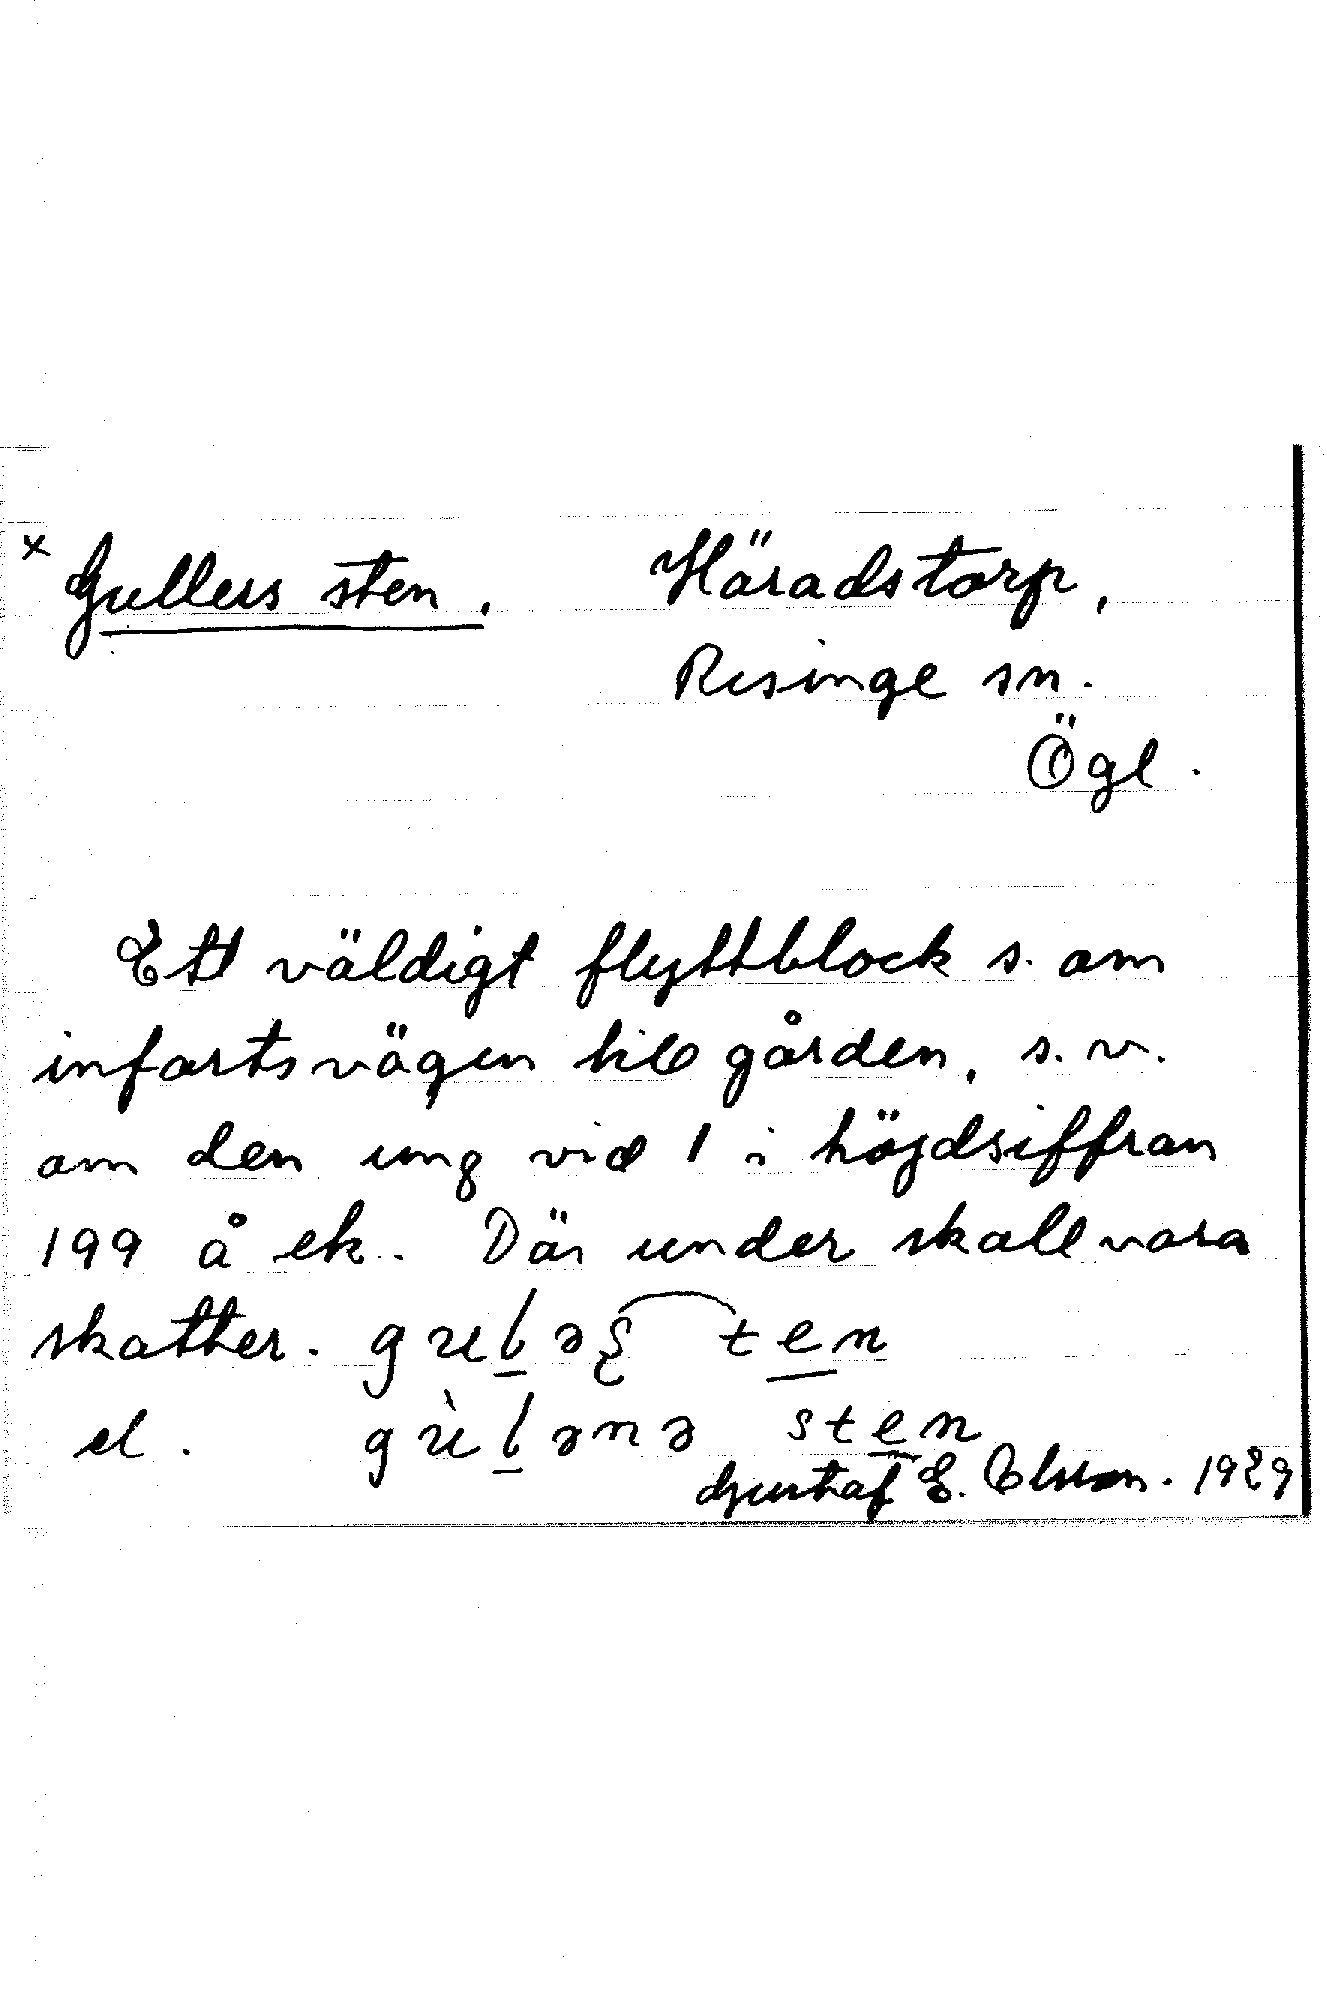 x Gullers sten. Häradstorp,
Risinge sn.
Ögl.
Ett väldigt flyttblock s. om
infartsvägen till gården, s.v.
om den ung vid 1 i höjdsiffran
199 å ek. Där under skall vara
skatter.
el.
Gustaf E. Olsson. 1929